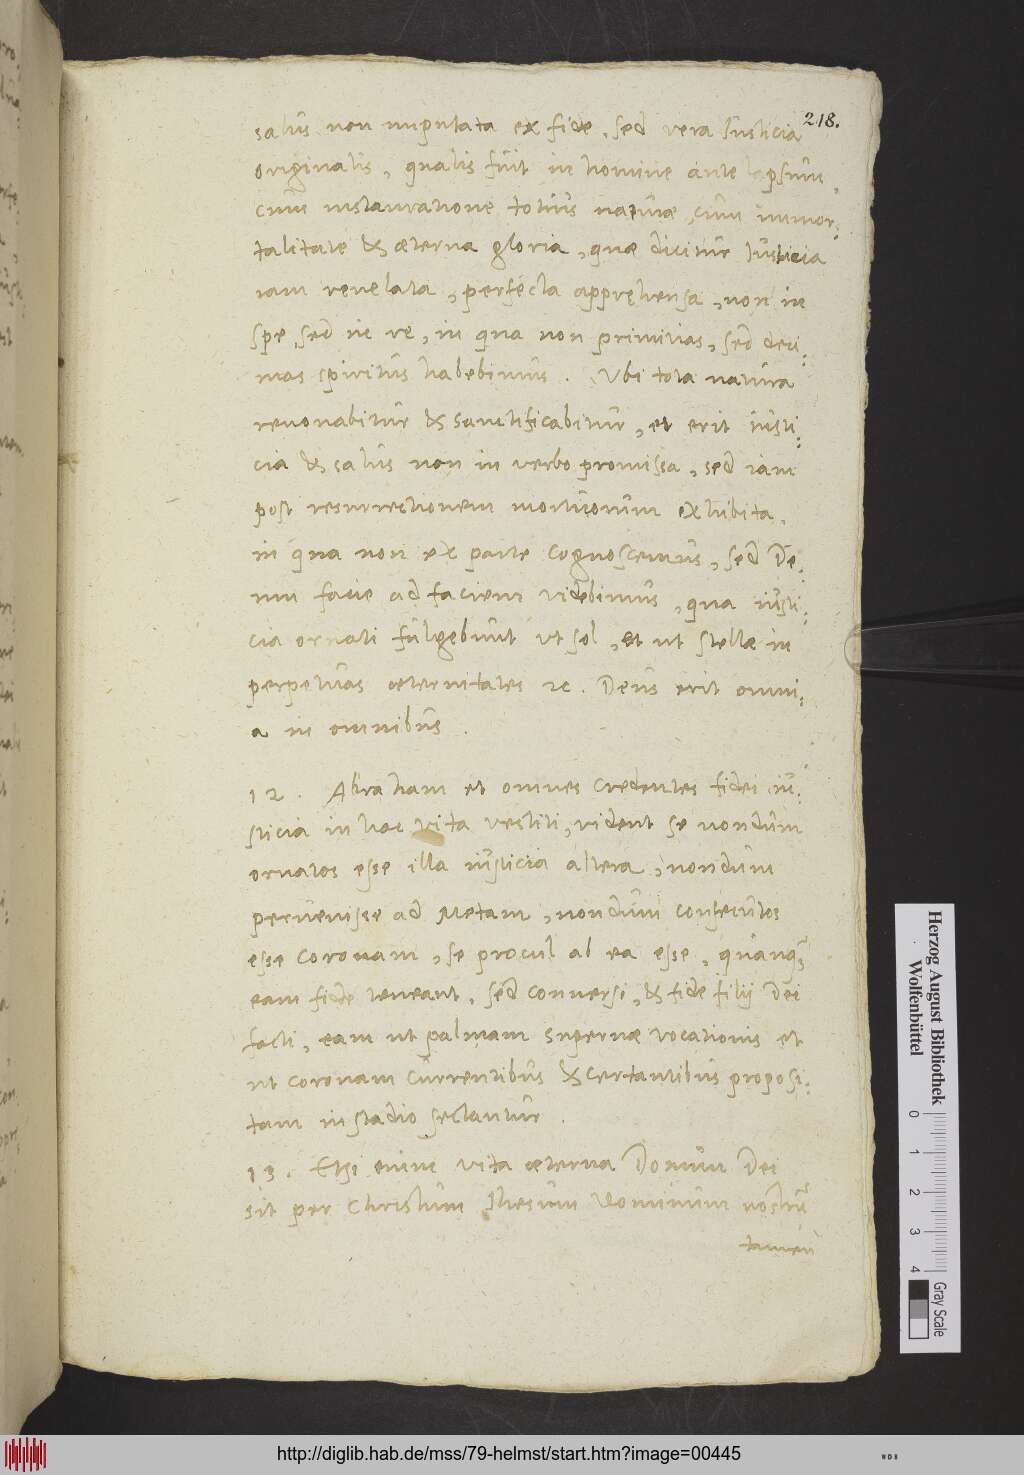 218.
salus non imputata ex fide, sed vera Iusticia
originalis, qualis fuit in homine ante lapsum,
cum instauratione totius naturæ, cum immor:
talitate & æterna gloria, quæ dicitur Iusticia
iam revelata, perfecta apprehensa, non in
spe, sed in re, in qua non primitias, sed deci:
mas spiritus habebimus. Ubi tota natura
renovabitur & sanctificabitur, et erit iusti:
cia & salus non in verbo promissa, sed iam
post resurrectionem mortuorum exhibita,
in qua non ex parte cognoscemus, sed De:
um facie ad faciem videbimus, qua iusti:
cia ornati fulgebunt ut sol, et ut stellæ in
perpetuas æternitates ꝛc. Deus erit omni:
a in omnibus.
12. Abraham et omnes credentes fidei iu:
sticia in hac vita vestiti, vident se nondum
ornatos esse illa iusticia altera, nondum
pervenisse ad Metam, nondum consecutos
esse coronam, se procul ab ea esse, quanqꝫ
eam fide teneant, sed conversi, & fide filij Dei
facti, eam ut palmam supernæ vocationis et
ut coronam currentibus & certantibus proposi:
tam in stadio sectantur.
13. Etsi enim vita æterna Donum Dei
sit per Christum Ihesum Dominum nostrū
tamen
Herzog August Bibliothek
Wolfenbüttel
0 1 2 3 4
Gray Scale
http://diglib.hab.de/mss/79-helmst/start.htm?image=00445